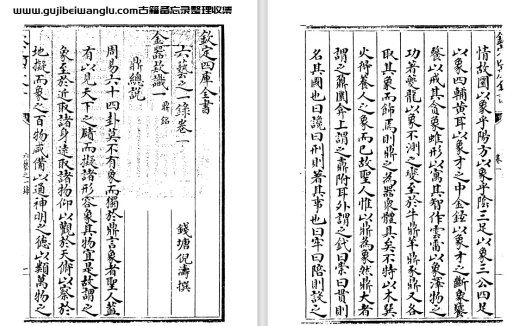 www.gujibeiwanglu.com古籍备忘录整理收集
欽定四庫全書
六藝之一錄卷一
錢塘倪濤撰
金器款識一 鼎銘
鼎總說
周易六十四卦莫不有象而獨於鼎言象者聖人蓋
有以見天下之賾而擬諸形容象其物宜是故謂之
象至於近取諸身遠取諸物仰以觀於天俯以察於
地擬而象之百物咸備以通神明之德以類萬物之
六藝之一錄
情故圜以象乎陽方以象乎陰三足以象三公四足
以象四輔黃耳以象才之中金鉉以象才之斷象饕
餮以戒其貪象蜼形以寓其智作雲雷以象澤物之
功著夔龍以象不測之變至於牛鼎羊鼎豕鼎又各
取其象而飾焉則鼎之為器衆體具矣不特以木巽
火得養人之象而已故聖人惟以鼎為象然鼎大者
謂之鼐圜弇上謂之鼒附耳外謂之釴曰崇曰貫則
名其國也曰讒曰刑則著其事也曰牢曰陪則設之